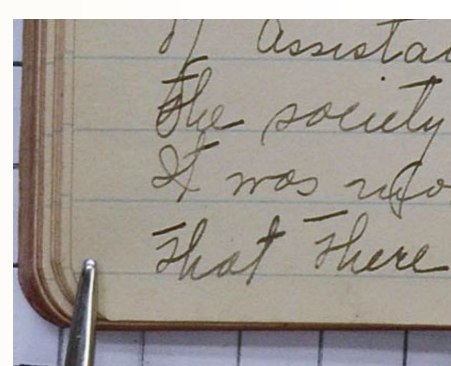 of assista
the society
It was
that there